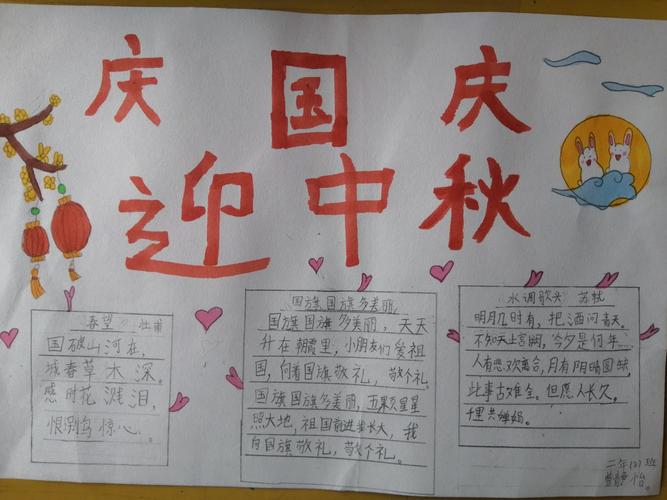 庆国庆
迎中秋
春望 杜甫
国破山河在，
城春草木深。
感时花溅泪，
恨别鸟惊心。
国旗国旗多美丽
国旗国旗多美丽，天天
升在朝霞里，小朋友们爱祖
国，向着国旗敬礼，敬个礼。
国旗国旗多美丽，五颗星星
照大地，祖国前进我长大，我
向国旗敬礼，敬个礼。
水调歌头 苏轼
明月几时有，把酒问青天。
不知天上宫阙，今夕是何年…
人有悲欢离合，月有阴晴圆缺，
此事古难全。但愿人长久，
千里共婵娟。
二年 班
静怡。